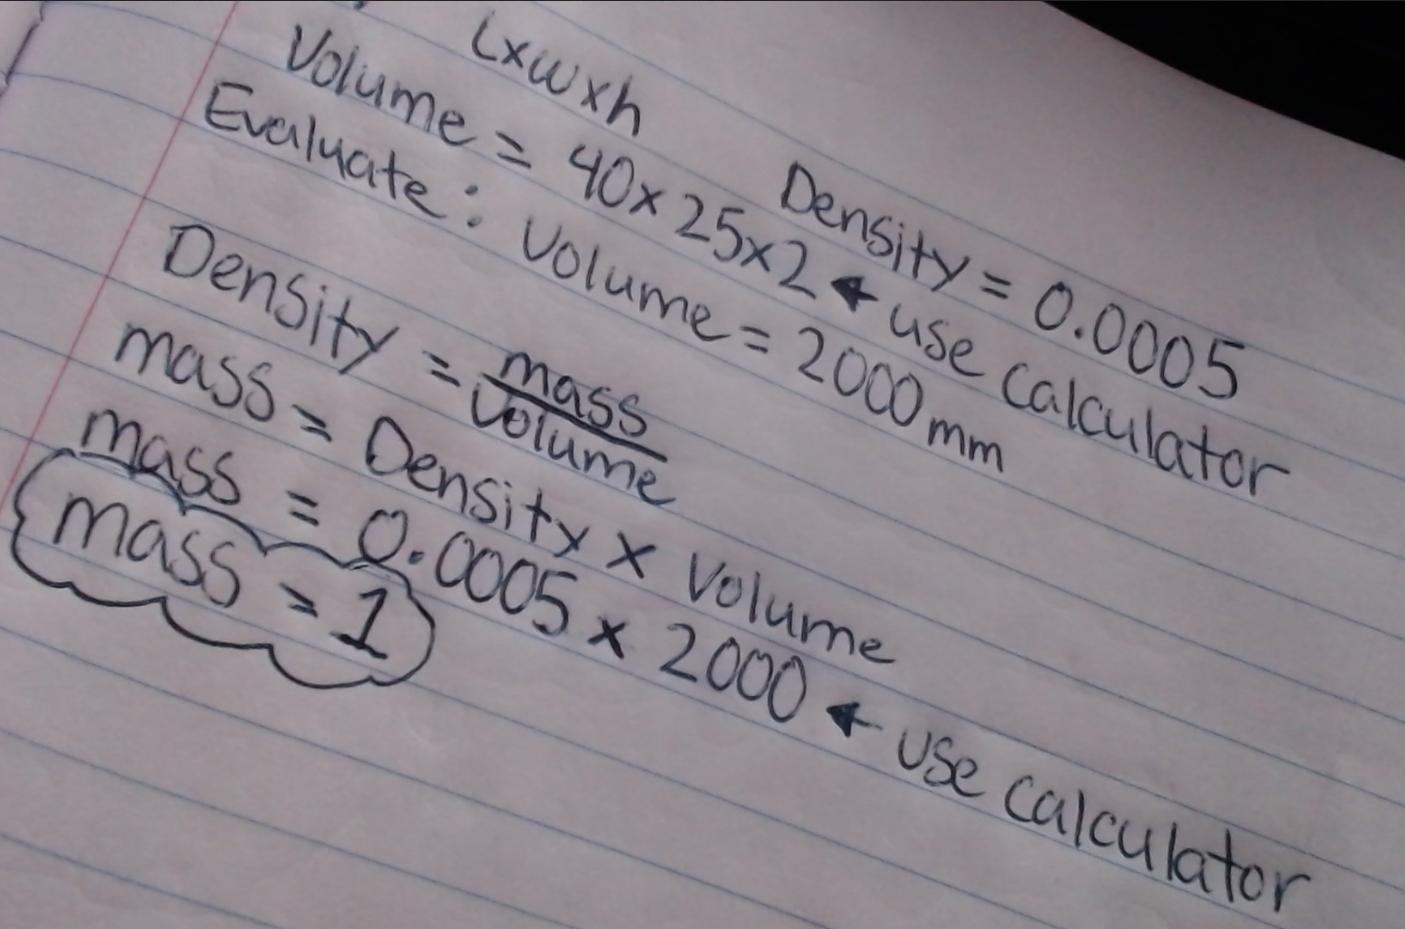 L x w x h
Volume = 40 x 25 x 2 ← use calculator
Density = 0.0005
Evaluate: Volume = 2000 mm
Density = mass/Volume
mass = Density x Volume
mass = 0.0005 x 2000 ← use calculator
mass = 1